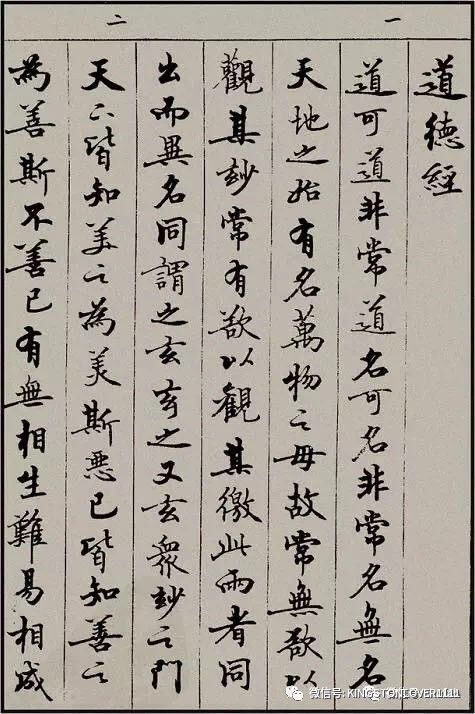 一
道德經
道可道非常道名可名非常名無名
天地之始有名萬物之母故常無欲以
觀其玅常有欲以觀其徼此兩者同
二
出而異名同謂之玄玄之又玄眾玅之門
天下皆知美之為美斯惡已皆知善之
為善斯不善已有無相生難易相成
微信号: KINGSTONLOVER1111